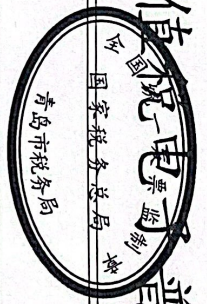 值税电子普
全国统一发票监制章
国家税务总局
青岛市税务局